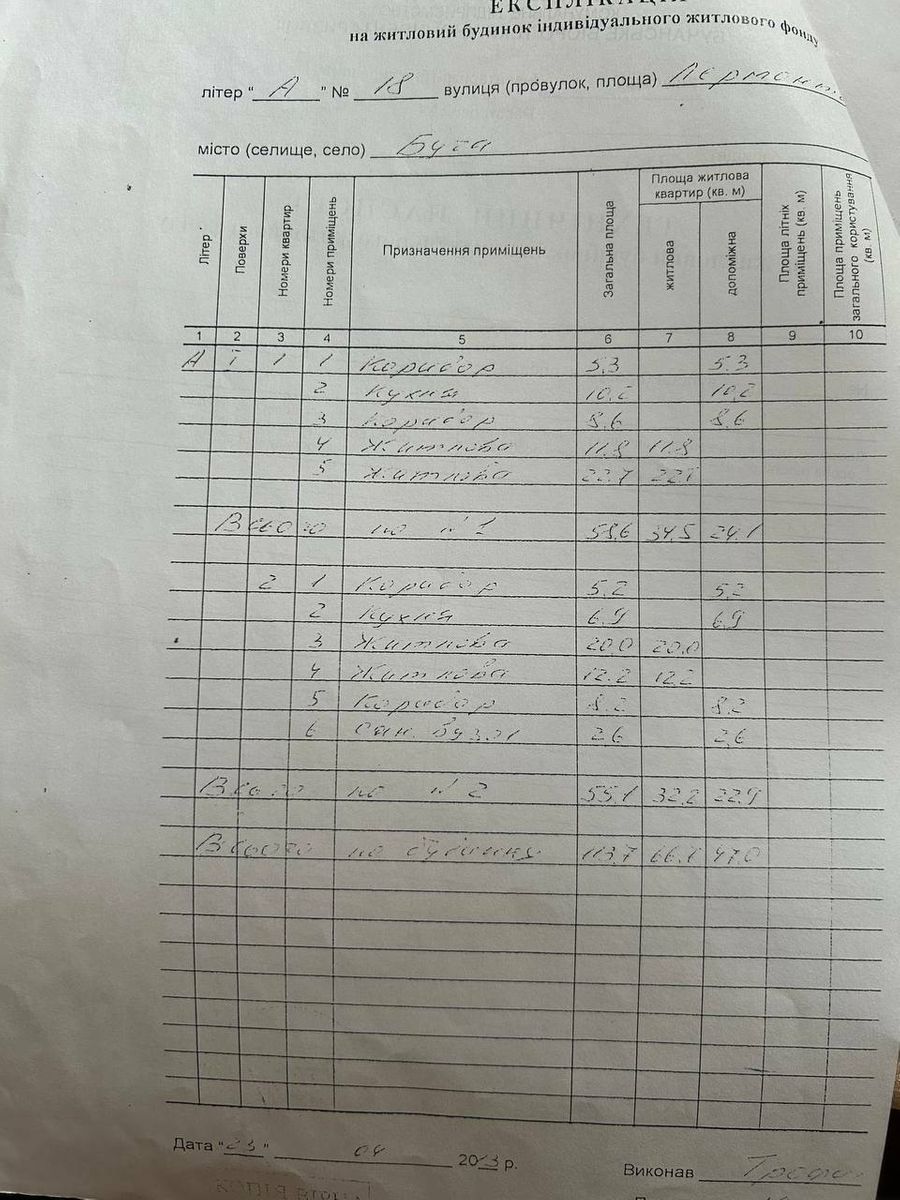 ЕКСПЛІКАЦІЯ
на житловий будинок індивідуального житлового фонду
літер "А" № 18 вулиця (провулок, площа)
місто (селище, село) Буча
Літер Поверхи Номери квартир Номери приміщень Призначення приміщень Загальна площа Площа житлова квартир (кв. м) житлова допоміжна Площа літніх приміщень (кв. м) Площа приміщень загального користування (кв. м)
1 2 3 4 5 6 7 8 9 10
А І 1 1 Коридор 5.3 5.3
2 Кухня 10,2 10,2
3 Коридор 8,6 8,6
4 Житлова 11,8 11,8
5 Житлова 22.7 22.7
Всього по №1 58,6 34,5 24.1
2 1 Коридор 5.2 5.2
2 Кухня 6,9 6,9
3 Житлова 20,0 20,0
4 Житлова 12.2 12.2
5 Коридор 8.2 8.2
6 Сан. вузол 2.6 2,6
Всього по №2 55,1 32,2 22,9
Всього по будинку 113,7 66.7 47.0
Дата "23" 04 2013 р.
Виконав